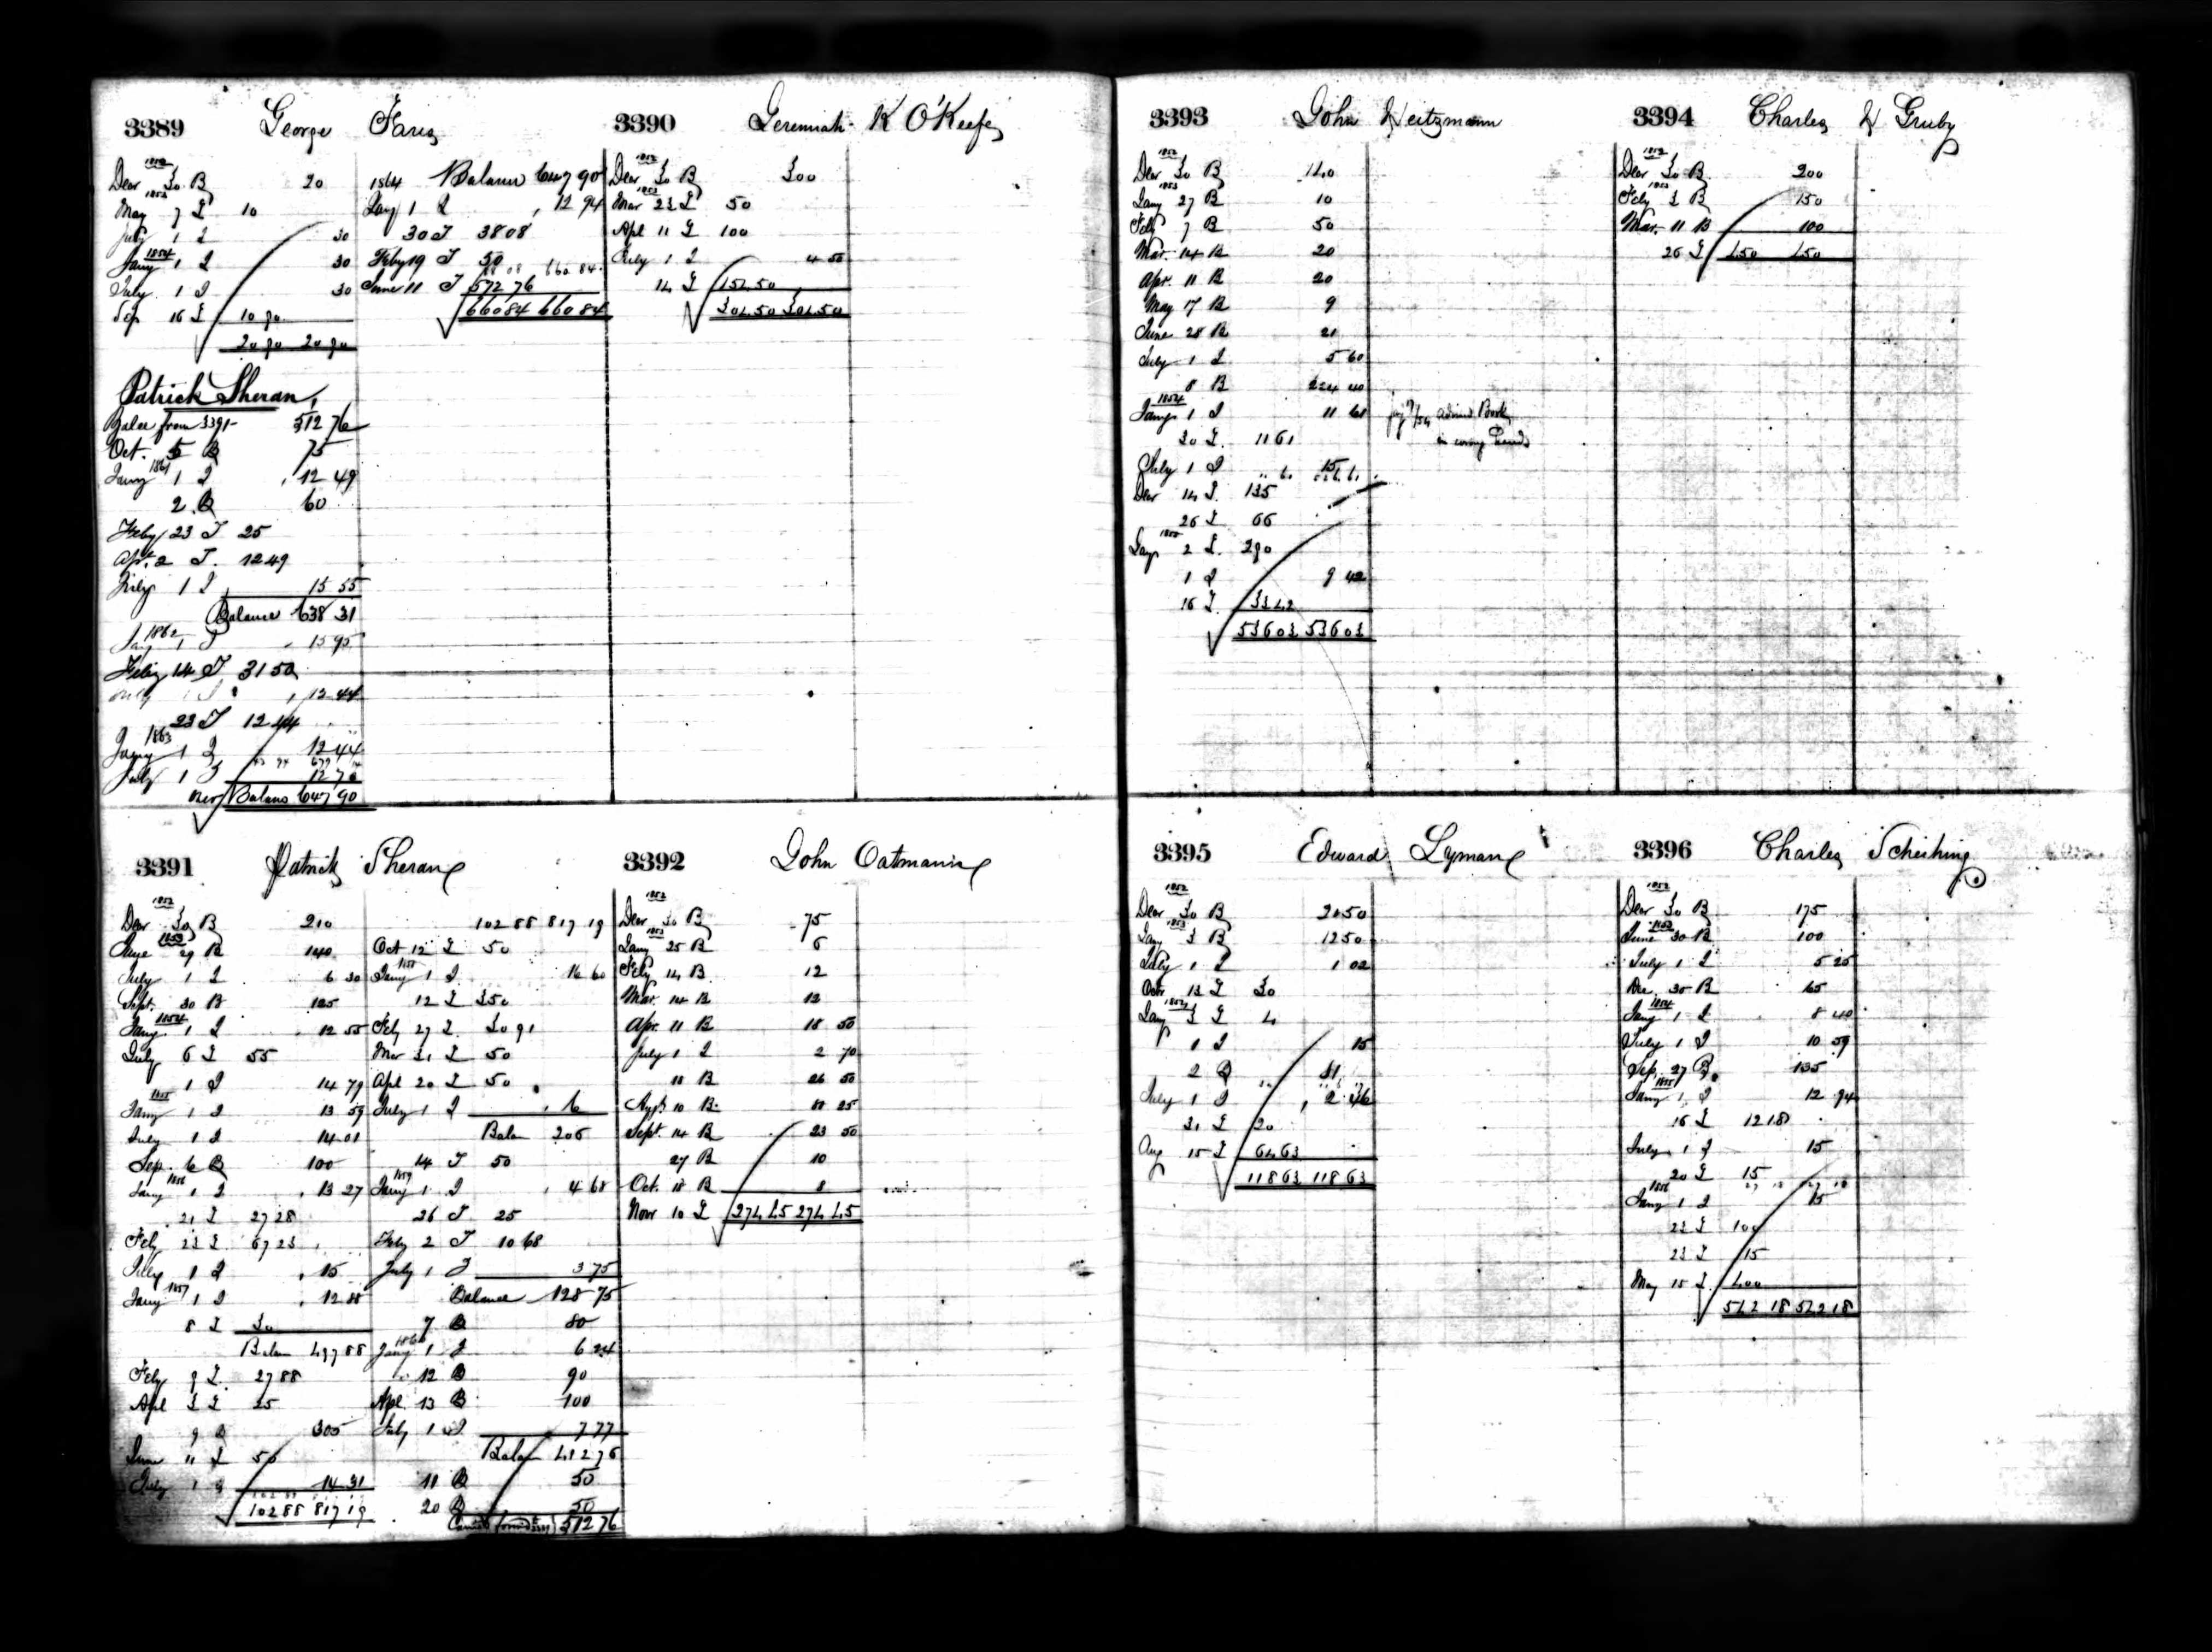 3389 George Faris
1852
Decr 30 B 20
1853
May 7 L 10
July 1 I 30
1854
Jany 1 I 30
July 1 I 30
Sep 16 L 10 90
20 90 20 90
Patrick Sheran
Balce from 3391- 512 76
Oct. 5 B 75
1861
Jany 1 I 12 49
2 B 60
Feby 23 T 25
Apr. 2 T. 12 49
July 1 I 15 55
Balance 638 31
1862
Jany 1 I 15 95
Feby 14 T 31 50
July 1 I 12 44
23 T 12 44
1863
Jany 1 I 12 44
July 1 I 12 70
over Balance 647 90
1864 Balance 647 90
Jany 1 I 12 94
30 T 38 08
Feby 19 T 50
88 08 660 84
June 11 T 572 76
660 84 660 84
3390 Jeremiah K O'Keefe
1852
Decr 30 B 300
1853
Mar 23 L 50
Apl 11 L 100
July 1 I 4 50
14 L 154 50
304 50 304 50
3391 Patrick Sheran
1852
Decr 30 B 210
1853
June 29 B 140
July 1 I 6 30
Sept. 30 B 125
1854
Jany 1 I 12 55
July 6 L 55
1 I 14 79
1855
Jany 1 I 13 59
July 1 I 14 01
Sep. 6 B 100
1856
Jany 1 I 13 27
21 L 27 28
Feby 23 L 67 23
July 1 I 15
1857
Jany 1 I 12 88
8 L 30
Balan 497 88
Feby 9 L 27 88
Apl 3 L 25
9 B 305
June 11 L 50
July 1 I 14 31
102 88 817 19
102 88 817 19
Oct 12 L 50
1858
Jany 1 I 16 60
12 L 350
Feby 27 L 30 91
Mar 31 L 50
Apl 20 L 50
July 1 I 6
Balan 206
14 T 50
1859
Jany 1 I 4 68
26 T 25
Feby 2 T 10 68
July 1 I 3 75
Balance 128 75
7 B 80
1860
Jany 1 I 6 24
12 B 90
Apl 13 B 100
July 1 I 7 77
Balan 412 76
11 B 50
20 B 50
Carried forward 512 76
3392 John Oatmann
1852
Decr 30 B 75
1853
Jany 25 B 6
Feby 14 B 12
Mar. 14 B 12
Apr. 11 B 18 50
July 1 I 2 70
11 B 26 50
Sept. 14 B 23 50
27 B 10
Oct. 18 B 8
Novr 10 L 274 45 274 45
3393 John Heitzmann
1852
Decr 30 B 140
1853
Jany 27 B 10
Feby 7 B 50
Mar. 14 B 20
Apr. 11 B 20
May 17 B 9
June 28 B 21
July 1 I 5 60
8 B 224 40
1854
Jany 1 I 11 61
30 L 11 61
July 1 I 15
Decr 14 L 135
26 L 66
1855
Jany 2 L 290
1 I 9 42
16 L 33 42
536 03 536 03
in wrong hands
3394 Charles H Gruby
1852
Decr 30 B 200
1853
Feby 3 B 150
Mar. 11 B 100
26 L 450 450
3395 Edward Lyman
1852
Decr 30 B 20 50
1853
Jany 3 B 12 50
July 1 I 1 02
Octr 13 L 30
1854
Jany 3 L 4
1 I 15
2 B 81
July 1 I 2 46
31 L 20
Aug 15 L 64 63
118 63 118 63
3396 Charles Scheihing
1852
Decr 30 B 175
1853
June 30 B 100
July 1 I 5 25
Dec. 30 B 65
1854
Jany 1 I 8 40
July 1 I 10 59
Sep. 27 B 135
1855
Jany 1 I 12 94
16 L 12 18
July 1 I 15
20 L 15
1856
Jany 1 I 15
23 L 100
23 L 15
May 15 L 400
542 18 542 18